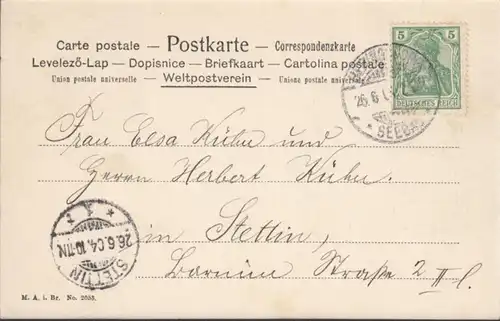 Carte postale — Postkarte — Correspondenzkarte
Levelező-Lap — Dopisnice — Briefkaart — Cartolina postale
Union postale universelle — Weltpostverein — Unione postale universale
5 5
DEUTSCHES REICH
26 6
* SEEBAD
Frau Elsa Kühn und
Herrn Herbert Kühn.
in Stettin,
Barnim Straße 2 II l.
* 1 *
26.6.04. 10-11N.
STETTIN
M. A. i. Br. No. 2055.